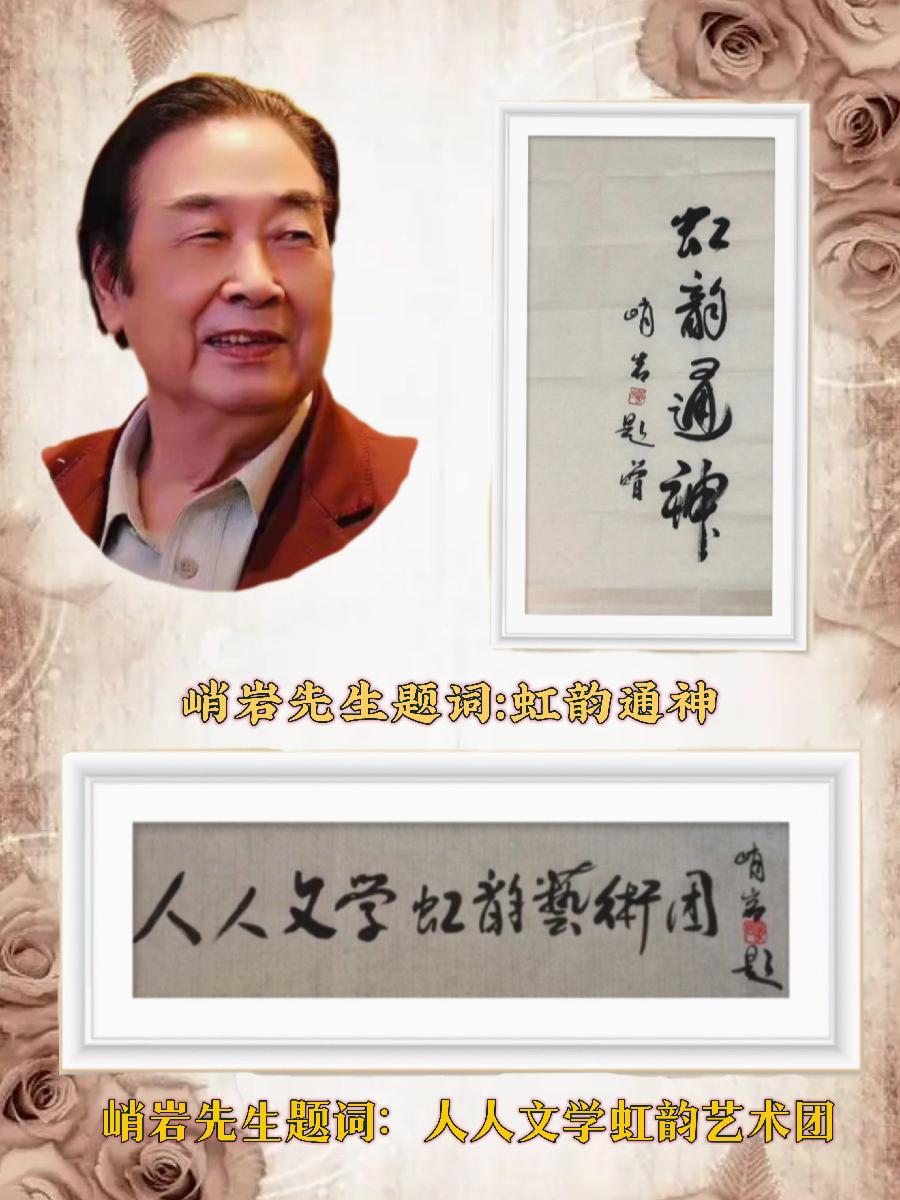 虹韵通神
峭岩题赠
峭岩先生题词:虹韵通神
人人文学虹韵藝術团
峭岩题
峭岩先生题词：人人文学虹韵艺术团